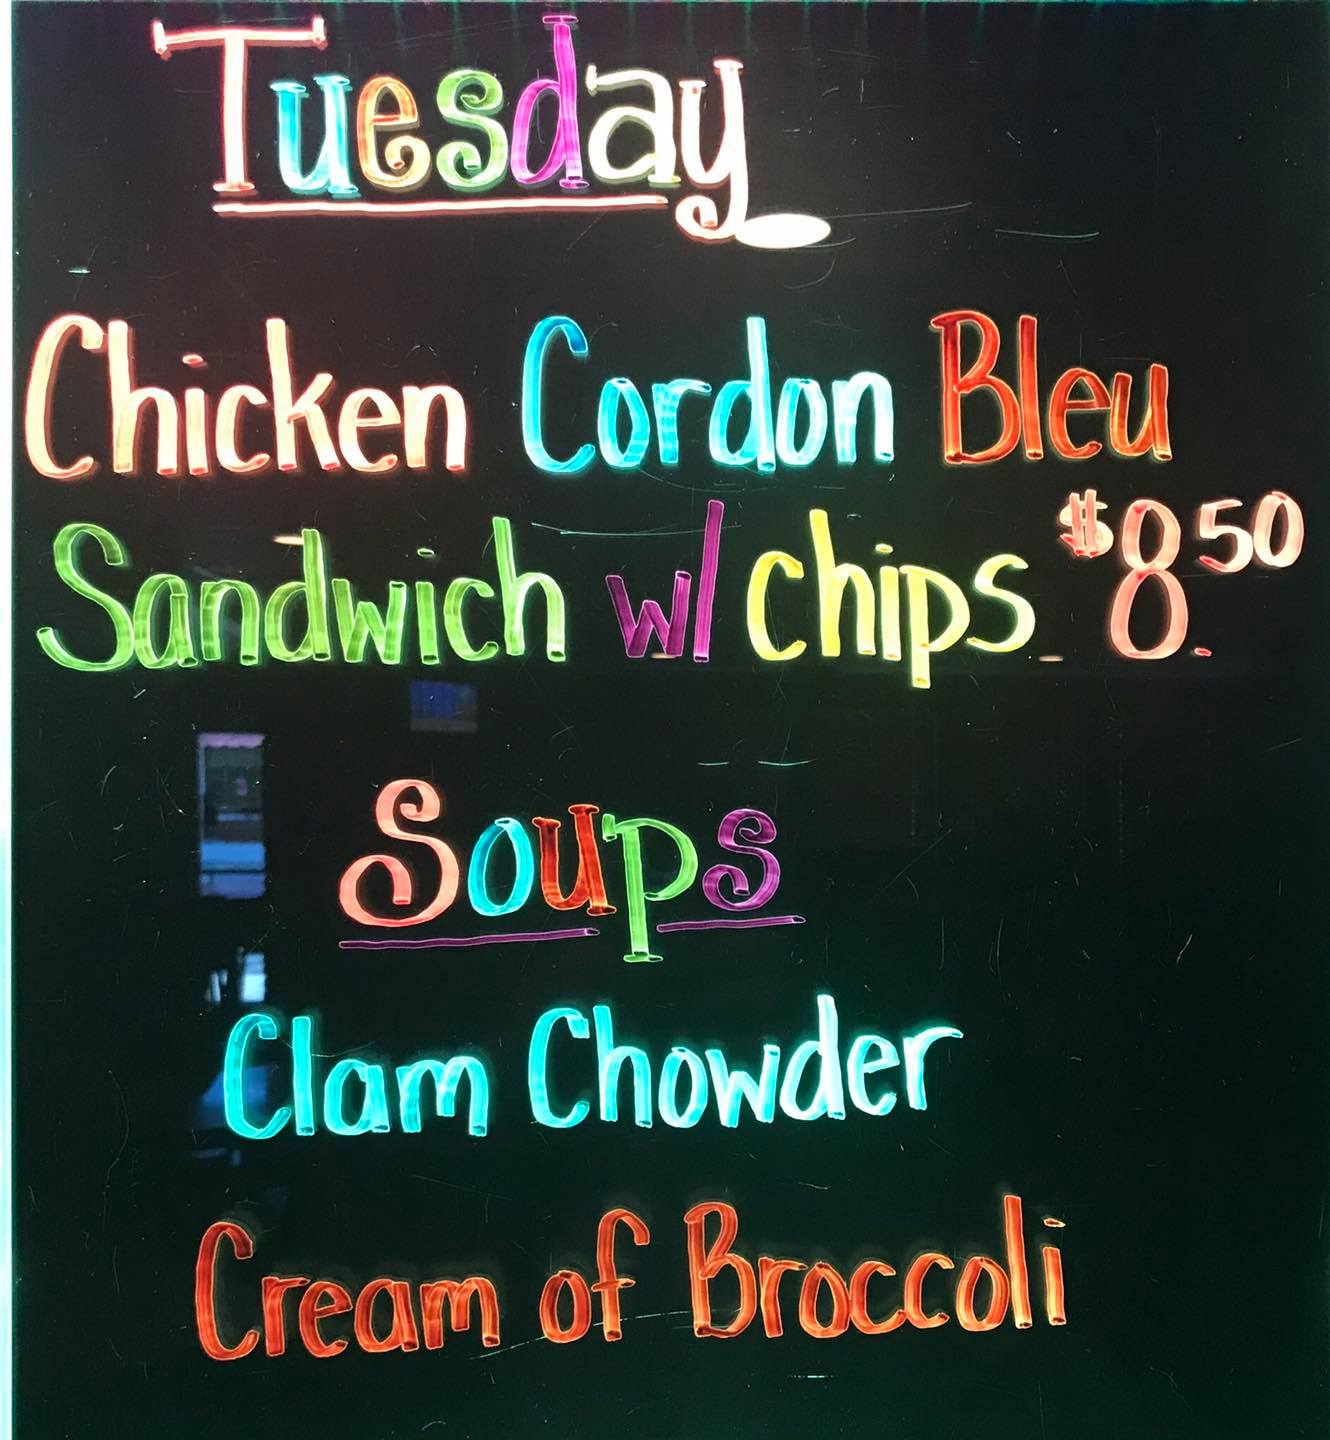 Tuesday
Chicken Cordon Bleu
Sandwich w/ chips $8.50
Soups
Clam Chowder
Cream of Broccoli